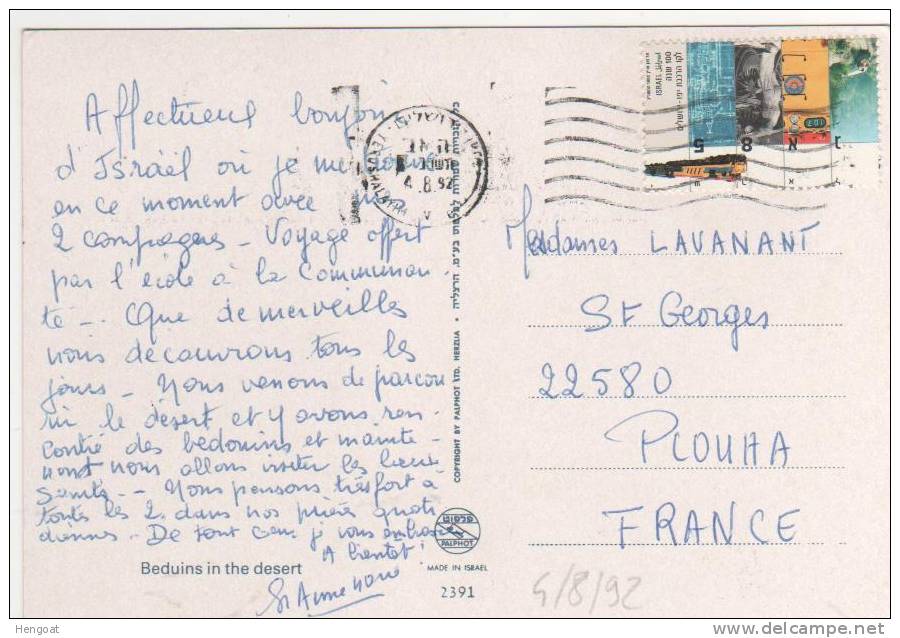 Affectueux bonjour
d'Israël où je me trouve
en ce moment avec
2 compagnes - Voyage offert
par l'école à la Communau-
té -. Que de merveilles
nous découvrons tous les
jours - Nous venons de parcou
rir le désert et y avons ren-
contré des bedouins et mainte-
nant nous allons visiter les lieux
Saints. - Nous pensons très fort à
toutes les 2 dans nos prières quoti
diennes - De tout coeur je vous embrasse
A bientôt!
Sr Anne Marie
Beduins in the desert
COPYRIGHT BY PALPHOT LTD. HERZLIA •
פלפוט
PALPHOT
MADE IN ISRAEL
2391
ISRAEL
JERUSHALAYIM
4.8.92
Mesdames LAVANANT
St Georges
22580
PLOUHA
FRANCE
4/8/92
Hengoat
www.delcampe.net